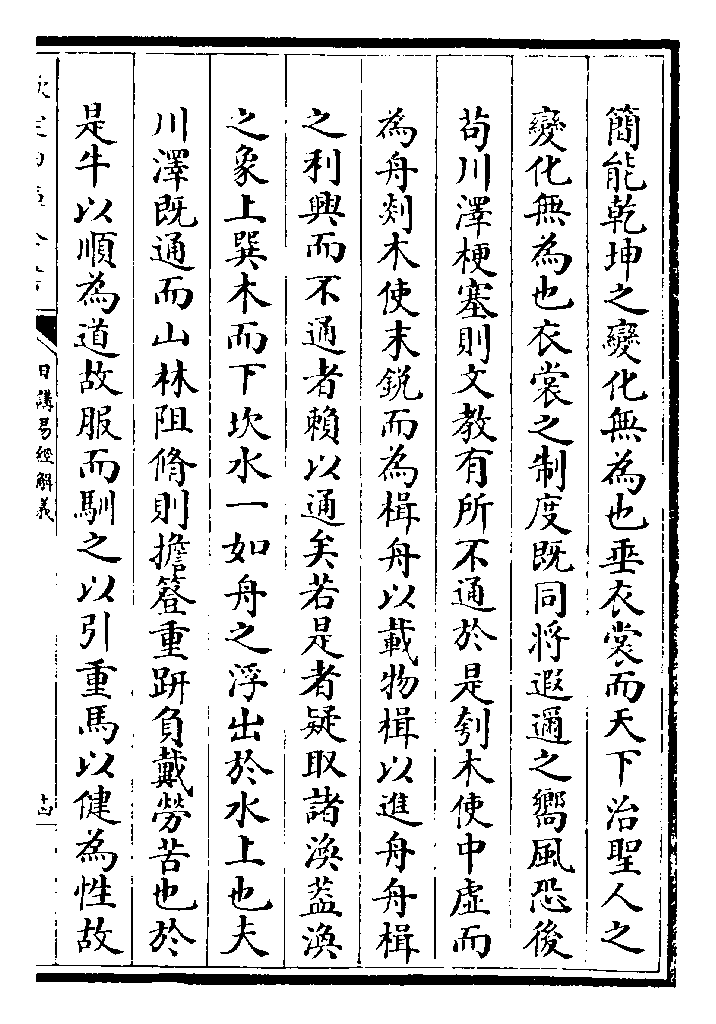 簡能乾坤之變化無為也垂衣裳而天下治聖人之
變化無為也衣裳之制度既同將遐邇之嚮風恐後
茍川澤梗塞則文教有所不通於是刳木使中虛而
為舟剡木使末鋭而為楫舟以載物楫以進舟舟楫
之利興而不通者賴以通矣若是者疑取諸渙葢渙
之象上巽木而下坎水一如舟之浮出於水上也夫
川澤既通而山林阻脩則擔簦重趼負戴勞苦也於
是牛以順為道故服而馴之以引重馬以健為性故
日講易經解義